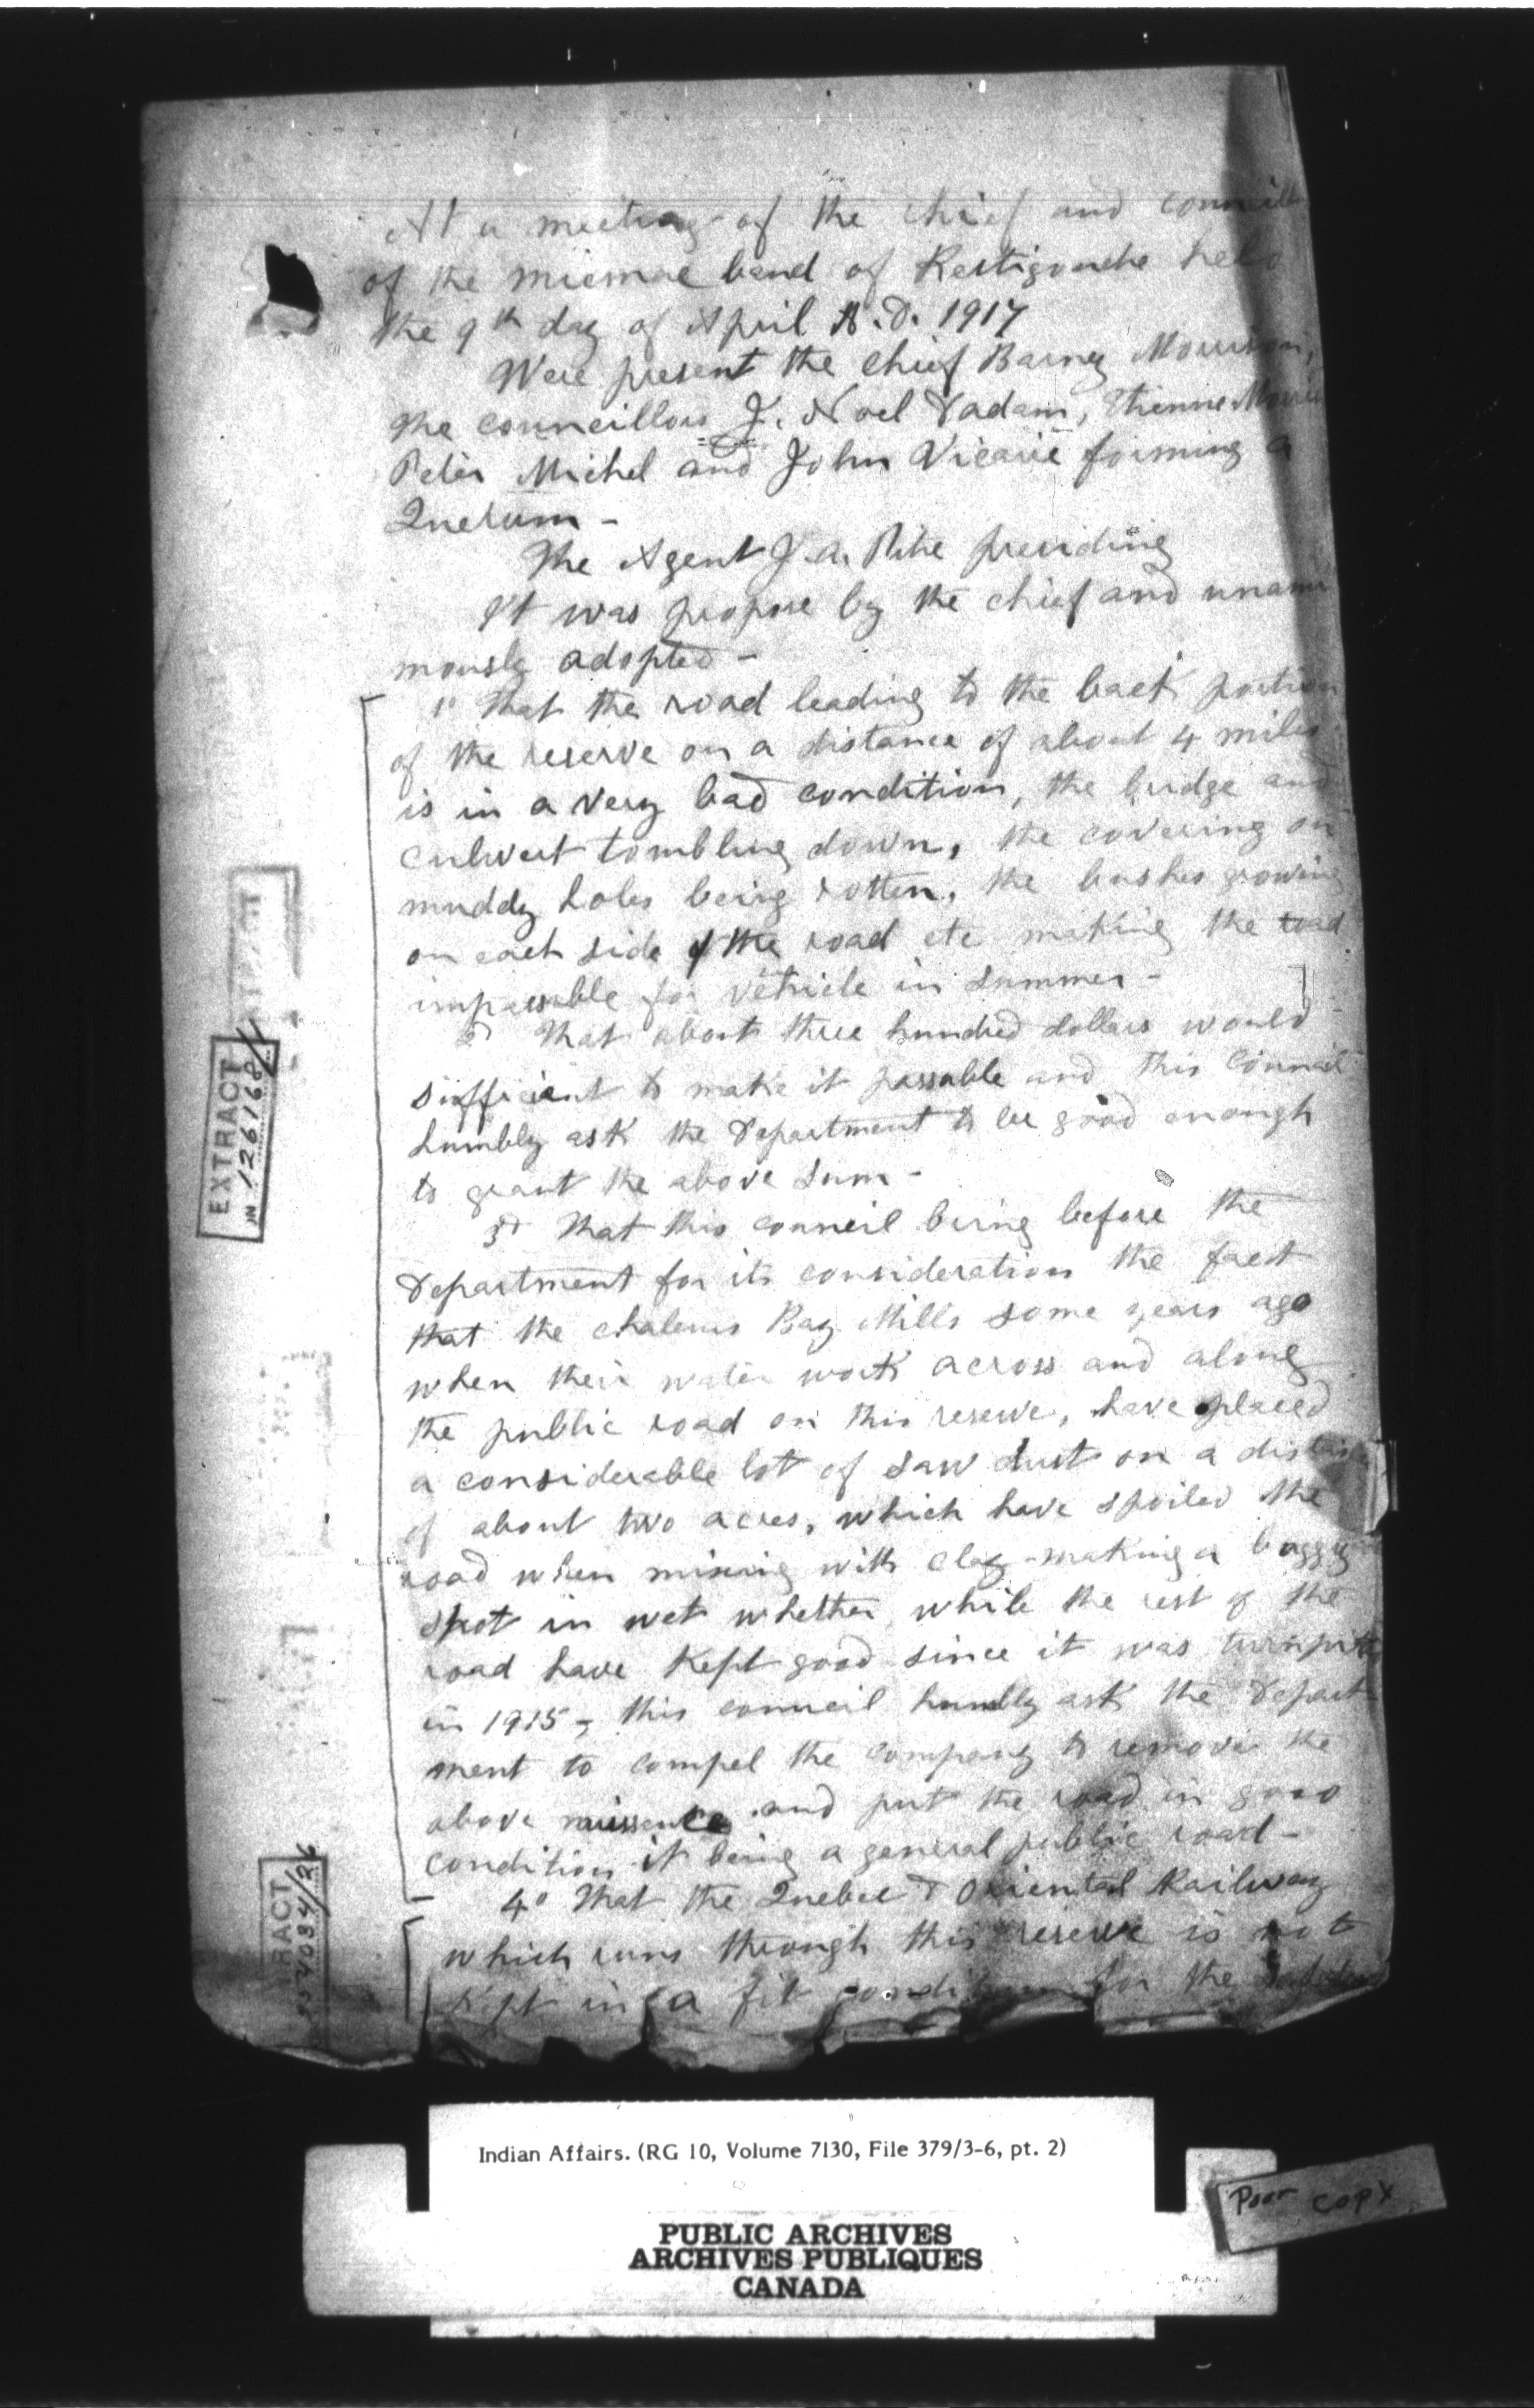 At a meeting of the chief and councill
of the micmac band of Restigouche held
the 9th day of April A.D. 1917
Were present the chief Barney Morrison,
the councillors J. Noel Vadam, Etienne Morris
Peter Michel and John Vicaire forming a
Quorum -
The Agent J. A. Pitre presiding
It was propose by the chief and unani
mously adopted -
1° That the road leading to the back portion
of the reserve on a distance of about 4 miles
is in a very bad condition, the bridge and
culvert tombling down, the covering on
muddy holes being rotten, the bushes growing
on each side of the road etc making the road
impassable for vehicle in summer -
2° That about three hundred dollars would
sufficient to make it passable and this Council
humbly ask the Department to be good enough
to grant the above sum -
3° That this council bring before the
Department for its consideration the fact
that the chaleurs Bay Mills some years ago
when their water work across and along
the public road on this reserve, have placed
a considerable lot of saw dust on a distan
of about two acres, which have spoiled the
road when mixing with clay making a boggy
spot in wet whether while the rest of the
road have kept good since it was turnpik
in 1915 - this council humbly ask the Depart-
ment to compel the company to remove the
above nuissence and put the road in good
condition it being a general public road -
4° That the Quebec & Oriental Railway
which runs through this reserve is not
kept in a fit condition for the
EXTRACT
IN 126168/1
RACT
Indian Affairs. (RG 10, Volume 7130, File 379/3-6, pt. 2)
Poor copy
PUBLIC ARCHIVES
ARCHIVES PUBLIQUES
CANADA